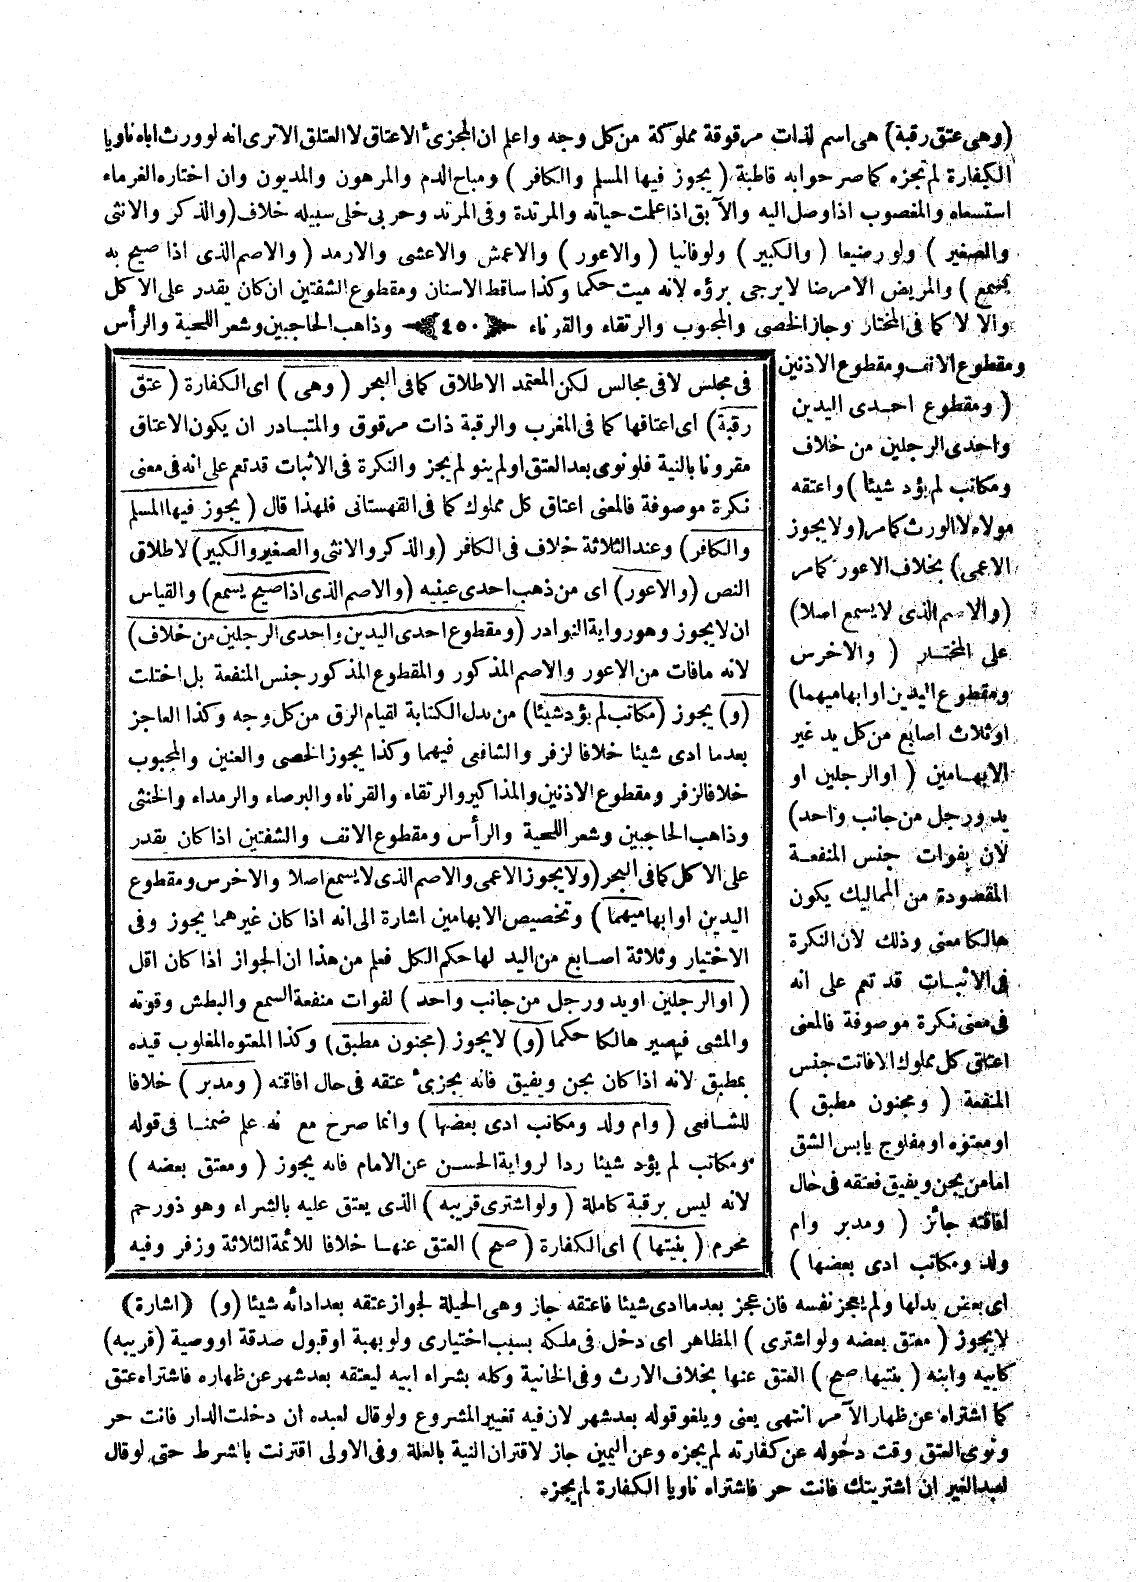 (وهى عتق رقبة) هى اسم لذات مرقوقة مملوكة من كل وجه واعلم ان المجزئ الاعتاق لا العتق الاترى انه لو ورث اباه ناويا
الكفارة لم تجزه كما صرحوا به قاطبة (يجوز فيها المسلم والكافر) ومباح الدم والمرهون والمديون وان اختاره الغرماء
استسعاه والمغصوب اذا وصل اليه والآبق اذا علمت حياته والمرتدة وفى المرتد وحربى خلى سبيله خلاف (والذكر والانثى
والصغير) ولو رضيعا (والكبير) ولو فانيا (والاعور) والاعمش والاعشى والارمد (والاصم الذى اذا صيح به
يسمع) والمريض الامرضا لا يرجى برؤه لانه ميت حكما وكذا ساقط الاسنان ومقطوع الشفتين ان كان يقدر على الاكل
والا لا كما فى المختار وجاز الخصى والمجبوب والرتقاء والقرناء ﴿٤٥٠﴾ وذاهب الحاجبين وشعر اللحية والرأس
ومقطوع الانف ومقطوع الاذنين
(ومقطوع احدى اليدين
واحدى الرجلين من خلاف
ومكاتب لم يؤد شيئا) واعتقه
مولاه لا الوارث كما مر (ولا يجوز
الاعمى) بخلاف الاعور كما مر
(والاصم الذى لا يسمع اصلا)
على المختار (والاخرس
ومقطوع اليدين او ابهاميهما)
او ثلاث اصابع من كل يد غير
الابهامين (او الرجلين او
يد ورجل من جانب واحد)
لان بفوات جنس المنفعة
المقصودة من المماليك يكون
هالكا معنى وذلك لان النكرة
فى الاثبات قد تعم على انه
فى معنى نكرة موصوفة فالمعنى
اعتاق كل مملوك الا فائت جنس
المنفعة (ومجنون مطبق)
او معتوه او مفلوج يابس الشق
اما من يجن ويفيق فعتقه فى حال
افاقته جائز (ومدبر وام
ولد ومكاتب ادى بعضها)
اى بعض بدلها ولم يعجز نفسه فان عجز بعد ما ادى شيئا فاعتقه جاز وهى الحيلة لجواز عتقه بعد ادائه شيئا (و) (اشارة)
لا يجوز (معتق بعضه ولو اشترى) المظاهر اى دخل فى ملكه بسبب اختيارى ولو بهبة او قبول صدقة او وصية (قريبه)
كابيه وابنه (بنيتها صح) العتق عنها بخلاف الارث وفى الخانية وكله بشراء ابيه ليعتقه بعد شهر عن ظهاره فاشتراه عتق
كما اشتراه عن ظهار الآمر انتهى يعنى ويلغو قوله بعد شهر لان فيه تغيير المشروع ولو قال لعبده ان دخلت الدار فانت حر
ونوى العتق وقت دخوله عن كفارته لم يجزه وعن اليمين جاز لاقتران النية بالعلة وفى الاولى اقترنت بالشرط حتى لو قال
لعبد الغير ان اشتريتك فانت حر فاشتراه ناويا الكفارة لم يجزه
فى مجلس لا فى مجالس لكن المعتمد الاطلاق كما فى البحر (وهى) اى الكفارة (عتق
رقبة) اى اعتاقها كما فى المغرب والرقبة ذات مرقوق والمتبادر ان يكون الاعتاق
مقرونا بالنية فلو نوى بعد العتق او لم ينو لم يجز والنكرة فى الاثبات قد تعم على انه فى معنى
نكرة موصوفة فالمعنى اعتاق كل مملوك كما فى القهستانى فلهذا قال (يجوز فيها المسلم
والكافر) وعند الثلاثة خلاف فى الكافر (والذكر والانثى والصغير والكبير) لاطلاق
النص (والاعور) اى من ذهب احدى عينيه (والاصم الذى اذا صيح يسمع) والقياس
ان لا يجوز وهو رواية النوادر (ومقطوع احدى اليدين واحدى الرجلين من خلاف)
لانه مافات من الاعور والاصم المذكور والمقطوع المذكور جنس المنفعة بل اختلت
(و) يجوز (مكاتب لم يؤد شيئا) من بدل الكتابة لقيام الرق من كل وجه وكذا العاجز
بعدما ادى شيئا خلافا لزفر والشافعى فيهما وكذا يجوز الخصى والعنين والمجبوب
خلافا لزفر ومقطوع الاذنين والمذاكير والرتقاء والقرناء والبرصاء والرمداء والخنثى
وذاهب الحاجبين وشعر اللحية والرأس ومقطوع الانف والشفتين اذا كان يقدر
على الاكل كما فى البحر (ولا يجوز الاعمى والاصم الذى لا يسمع اصلا والاخرس ومقطوع
اليدين او ابهاميهما) وتخصيص الابهامين اشارة الى انه اذا كان غيرهما يجوز وفى
الاختيار وثلاثة اصابع من اليد لها حكم الكل فعلم من هذا ان الجواز اذا كان اقل
(او الرجلين او يد ورجل من جانب واحد) لفوات منفعة السمع والبطش وقوته
والمشى فيصير هالكا حكما (و) لا يجوز (مجنون مطبق) وكذا المعتوه المغلوب قيده
بمطبق لانه اذا كان يجن ويفيق فانه يجزئ عتقه فى حال افاقته (ومدبر) خلافا
للشافعى (وام ولد ومكاتب ادى بعضها) وانما صرح مع نه علم ضمنا فى قوله
ومكاتب لم يؤد شيئا ردا لرواية الحسن عن الامام فانه يجوز (ومعتق بعضه)
لانه ليس برقبة كاملة (ولو اشترى قريبه) الذى يعتق عليه بالشراء وهو ذو رحم
محرم (بنيتها) اى الكفارة (صح) العتق عنها خلافا للأئمة الثلاثة وزفر وفيه